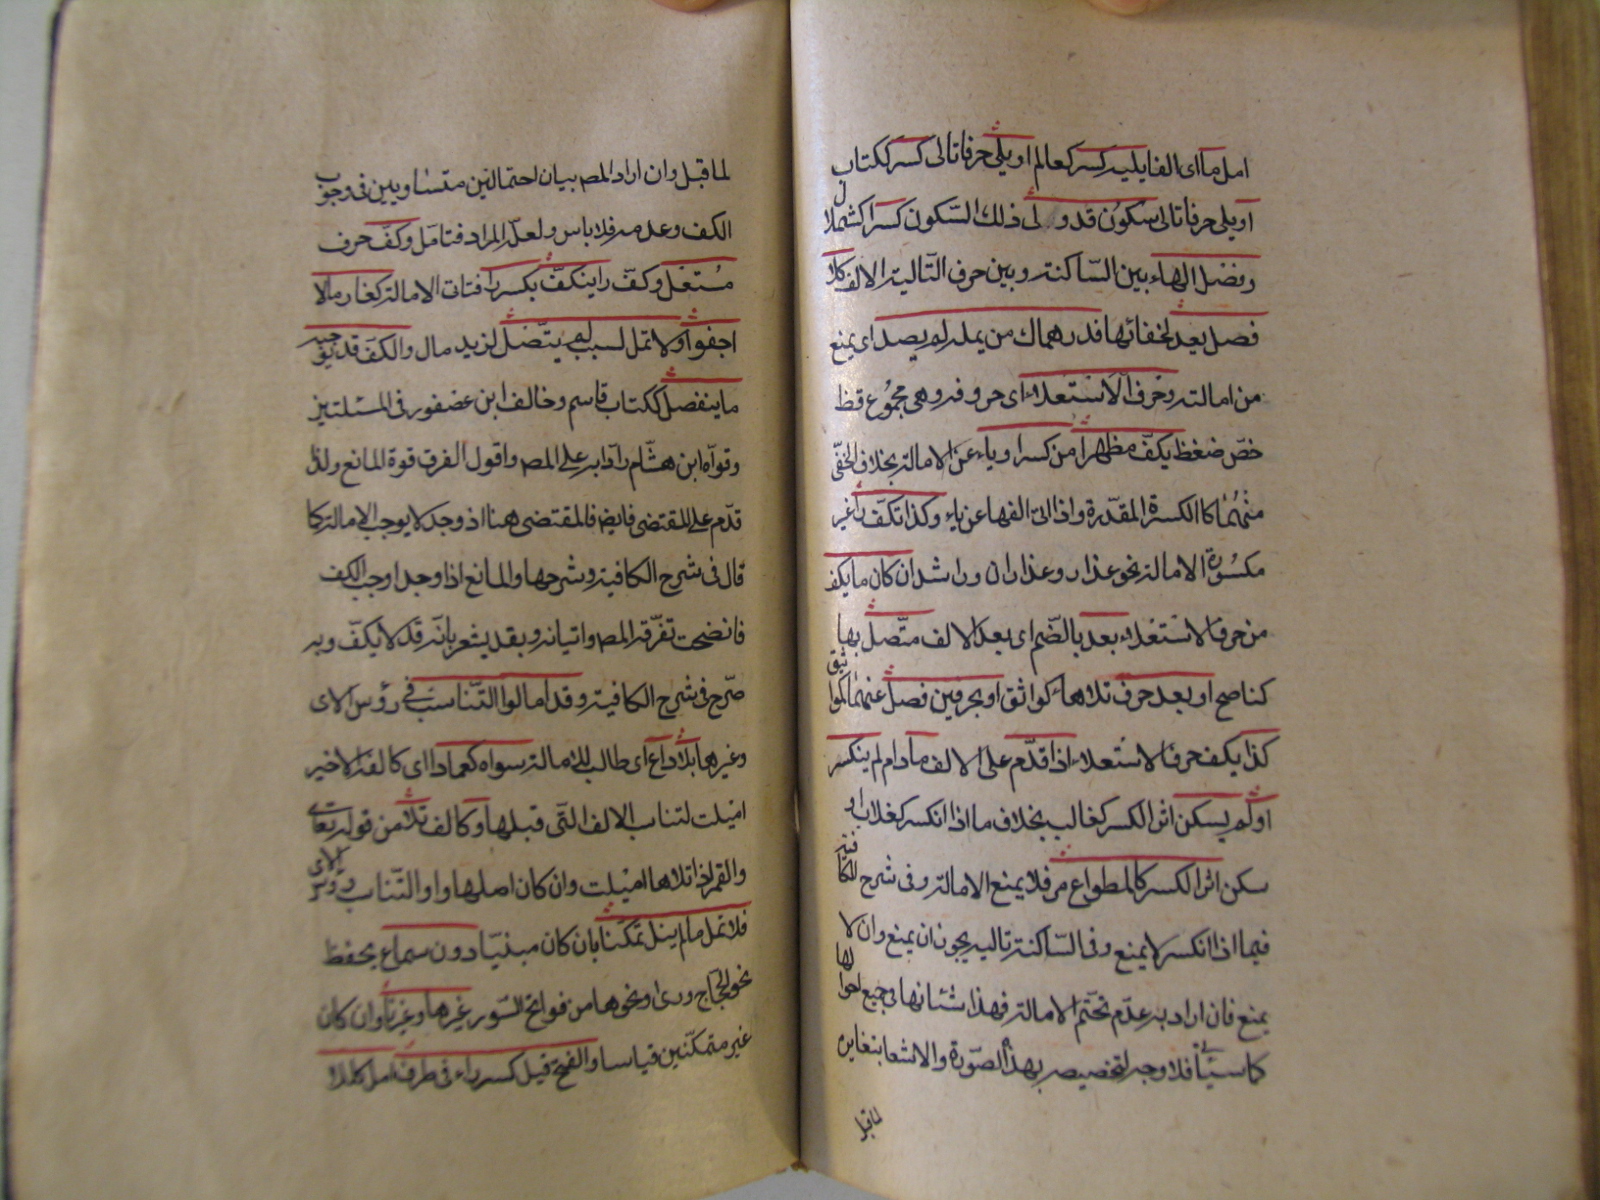 امل ما اى الفا يليه كسر كعالم او يلى حرفا تالى كسر ككتاب
او يلى حرفا تالى سكون قد ولى ذلك السّكون كسرا كشملال
وفصل الهاء بين السّاكنة وبين حرف التّالية الالف كلا
فصل يعد لخفائها فدرهماك من يمله لم يصد اى يمنع
من امالته وحرف الاستعلاء اى حروفه وهى مجموع قظ
خصّ ضغظ يكفّ مظهرا من كسر او ياء عن الامالة بخلاف الخفّى
منهما كالكسرة المقدّرة واذا التى الفها عن ياء وكذا تكفّ را غير
مكسورة الامالة نحو عذار وعذاران وراشد ان كان ما يكف
من حرف الاستعلاء بعد بالضّم اى بعد الالف متّصل بها
كناصح او بعد حرف تلاها كواثق او بحرفين فصل عنها كمواثيق
كذا يكف حرف الاستعلاء اذا قدّم على الالف ما دام لم ينكسر
او لم يسكن اثر الكسر كغالب بخلاف ما اذا انكسر كغلاب او
سكن اثر الكسر كالمطواع مر فلا يمنع الامالة وفى شرح الكافية
فيما اذا انكسر لا يمنع وفى السّاكنة تاليه يجوز ان يمنع وان لا
يمنع فان اراد به عدم تحتّم الامالة فهذا شئانها فى جميع احوالها
كما سيأتى فلا وجه لتخصيصه بهذه الصّورة والاشعار بتغاير
لما قبل
لما قبل وان اراد المص بيان احتمالين متساويين فى وجوب
الكف وعدمه فلا باس ولعلّه المراد فتامل وكفّ حرف
مستعل وكفّ را ينكفّ بكسر را فتات الامالة كغارم لا
اجفو ولا تمل لسبب لم يتّصل لزيد مال والكفّ قد يوجبه
ما ينفصل ككتاب قاسم وخالف ابن عصفور فى المسئلتين
وقوّاه ابن هشّام رادّا به على المص واقول الفرق قوة المانع ولذا
قدّم على المقتضى فايضا فالمقتضى هنا اذ وجد لا يوجب الامالة كما
قال فى شرح الكافية وشرحها والمانع اذا وجد اوجب الكف
فاتضحت تفرّقة المص واتيانه وبقد يشعر بانّه قد لا يكفّ وبه
صرّح فى شرح الكافية وقد امالوا التّناسب فى رؤس الاى
وغيرها بلا داع اى طالب للامالة سواه كعمادا اى كالفه الاخير
اميلت لتناسب الالف التى قبلها وكالف تلا من قوله تعالى
والقمر اذا تلاها اميلت وان كان اصلها واوا لتّناسب رؤس الاى
فلا تمل ما لم ينل تمكّنا بان كان مبنيّا دون سماع يحفظ
نحو الحجّاج ورا ونحوها من فواتح السّور غيرها وغيرنا وان كان
غير متمكّنين قياسا والفتح قبل كسر راء فى طرف امل كللا